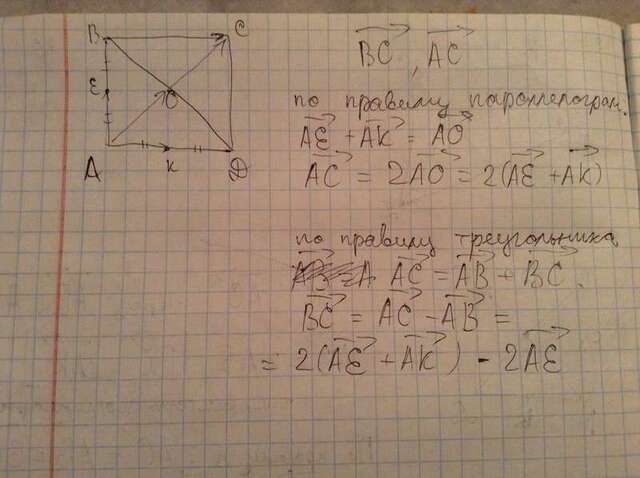 B C
E O
A K D
BC, AC
по правилу параллелограм.
AE + AK = AO
AC = 2AO = 2(AE + AK)
по правилу треугольника
AC = AB + BC.
BC = AC - AB =
= 2(AE + AK) - 2AE